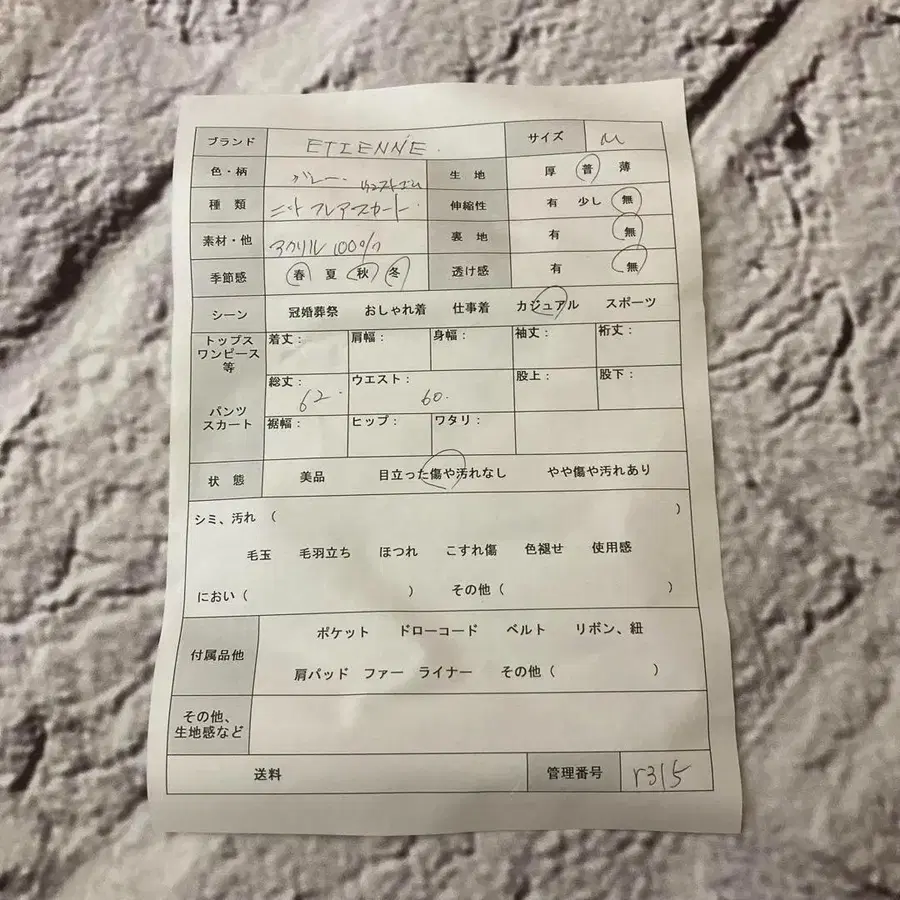 ブランド ETIENNE. サイズ M
色・柄 グレー. ウエストゴム 生地 厚 普 薄
種類 ニットフレアスカート. 伸縮性 有 少し 無
素材・他 アクリル100% 裏地 有 無
季節感 春 夏 秋 冬 透け感 有 無
シーン 冠婚葬祭 おしゃれ着 仕事着 カジュアル スポーツ
トップス
ワンピース
等
着丈: 肩幅: 身幅: 袖丈: 裄丈:
パンツ
スカート
総丈: 62. ウエスト: 60. 股上: 股下:
裾幅: ヒップ: ワタリ:
状態 美品 目立った傷や汚れなし やや傷や汚れあり
シミ、汚れ ( )
毛玉 毛羽立ち ほつれ こすれ傷 色褪せ 使用感
におい ( ) その他 ( )
付属品他 ポケット ドローコード ベルト リボン、紐
肩パッド ファー ライナー その他 ( )
その他、
生地感など
送料 管理番号 r315